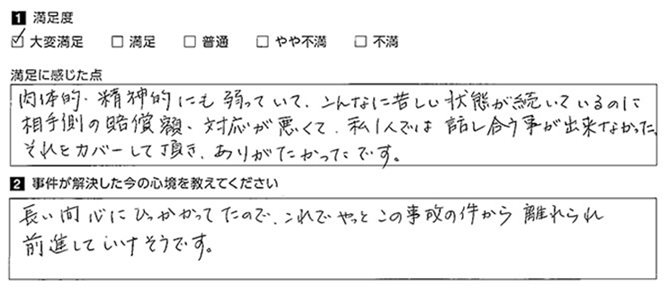 1 満足度
☑ 大変満足 □ 満足 □ 普通 □ やや不満 □ 不満
満足に感じた点
肉体的・精神的にも弱っていて、こんなに苦しい状態が続いているのに
相手側の賠償額、対応が悪くて、私1人では話し合う事が出来なかった。
それをカバーして頂き、ありがたかったです。
2 事件が解決した今の心境を教えてください
長い間心にひっかかってたので、これでやっとこの事故の件から離れられ
前進していけそうです。